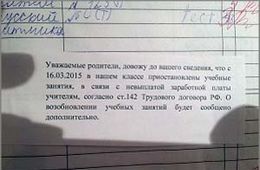 Уважаемые родители, довожу до вашего сведения, что с
16.03.2015 в нашем классе приостановлены учебные
занятия, в связи с невыплатой заработной платы
учителям, согласно ст.142 Трудового договора РФ. О
возобновлении учебных занятий будет сообщено
дополнительно.